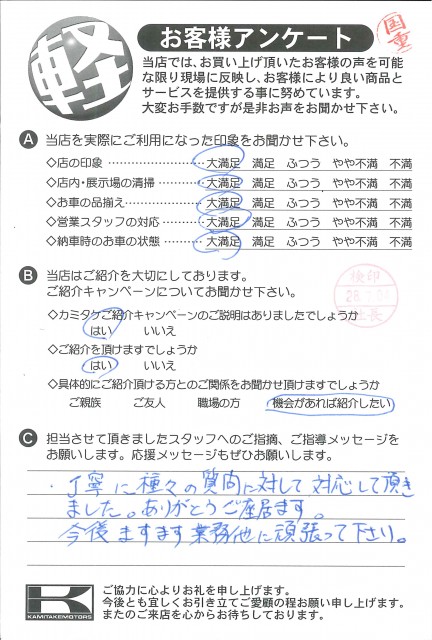 軽
お客様アンケート
国重
当店では、お買い上げ頂いたお客様の声を可能
な限り現場に反映し、お客様により良い商品と
サービスを提供する事に努めています。
大変お手数ですが是非お声をお聞かせ下さい。
A 当店を実際にご利用になった印象をお聞かせ下さい。
◇店の印象 大満足 満足 ふつう やや不満 不満
◇店内・展示場の清掃 大満足 満足 ふつう やや不満 不満
◇お車の品揃え 大満足 満足 ふつう やや不満 不満
◇営業スタッフの対応 大満足 満足 ふつう やや不満 不満
◇納車時のお車の状態 大満足 満足 ふつう やや不満 不満
B 当店はご紹介を大切にしております。
ご紹介キャンペーンについてお聞かせ下さい。
検印
社長
◇カミタケご紹介キャンペーンのご説明はありましたでしょうか
はい いいえ
◇ご紹介を頂けますでしょうか
はい いいえ
◇具体的にご紹介頂ける方とのご関係をお聞かせ頂けますでしょうか
ご親族 ご友人 職場の方 機会があれば紹介したい
C 担当させて頂きましたスタッフへのご指摘、ご指導メッセージを
お願いします。応援メッセージもぜひお願いします。
・丁寧に種々の質問に対して対応して頂き
ました。ありがとうご座居ます。
今後ますます業務他に頑張って下さり。
K
KAMITAKEMOTORS
ご協力に心よりお礼を申し上げます。
今後とも宜しくお引き立てご愛顧の程お願い申し上げます。
またのご来店を心からお待ちしております。